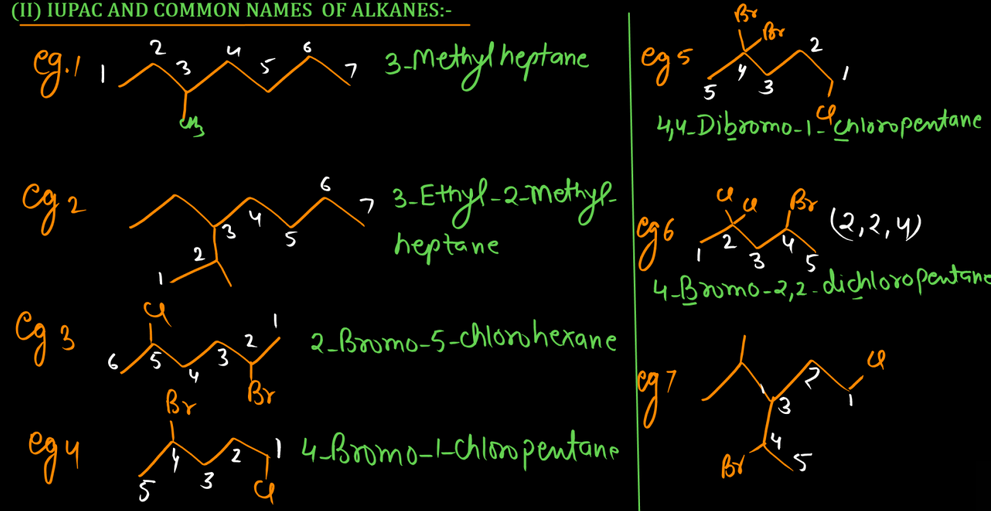 (II) IUPAC AND COMMON NAMES OF ALKANES:-
eg.1
1 2 3 4 5 6 7
CH3
3-Methyl heptane
eg 2
1 2 3 4 5 6 7
3-Ethyl-2-Methyl-
heptane
eg 3
Cl
6 5 4 3 2 1
Br
2-Bromo-5-chlorohexane
eg 4
Br
5 4 3 2 1
Cl
4-Bromo-1-chloropentane
eg 5
Br
Br
5 4 3 2 1
Cl
4,4-Dibromo-1-chloropentane
eg 6
Cl Cl Br
1 2 3 4 5
(2,2,4)
4-Bromo-2,2-dichloropentane
eg 7
Cl
3 2 1
4
Br 5